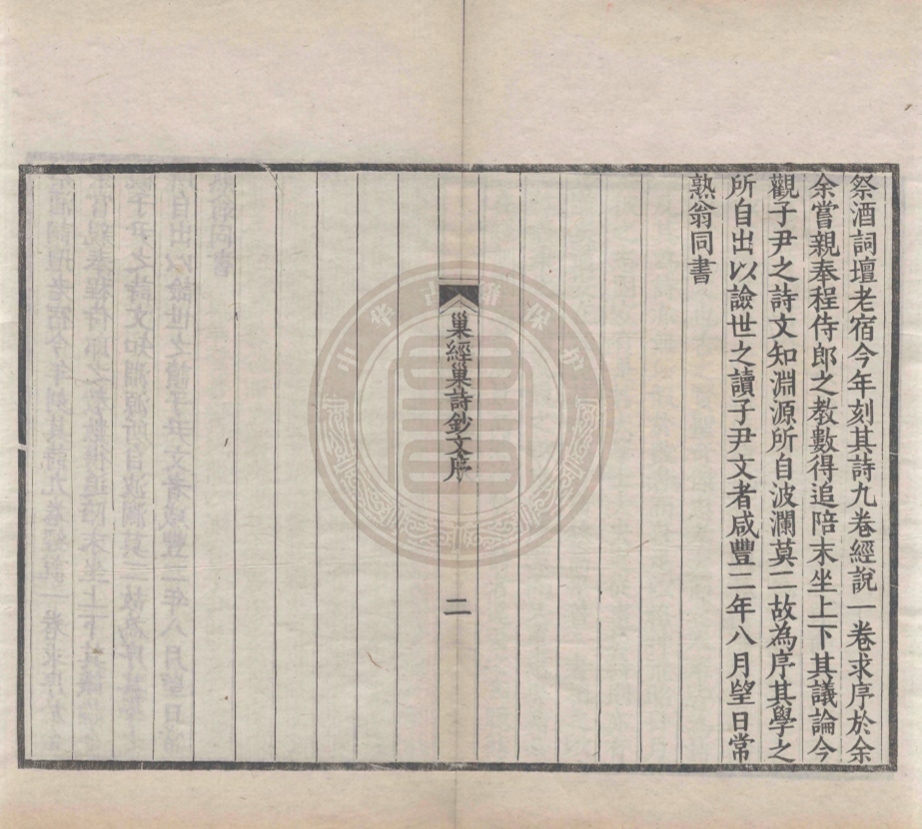 祭酒詞壇老宿今年刻其詩九卷經說一卷求序於余
余嘗親奉程侍郎之教數得追陪末坐上下其議論今
觀子尹之詩文知淵源所自波瀾莫二故為序其學之
所自出以諗世之讀子尹文者咸豐二年八月朢日常
熟翁同書
巢經巢詩鈔文序
二